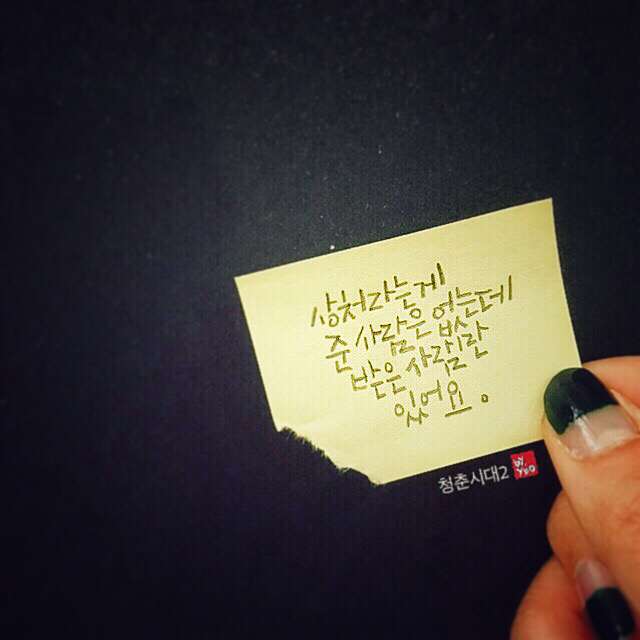 상처라는게
준 사람은 없는데
받은 사람만
있어요.
청춘시대2